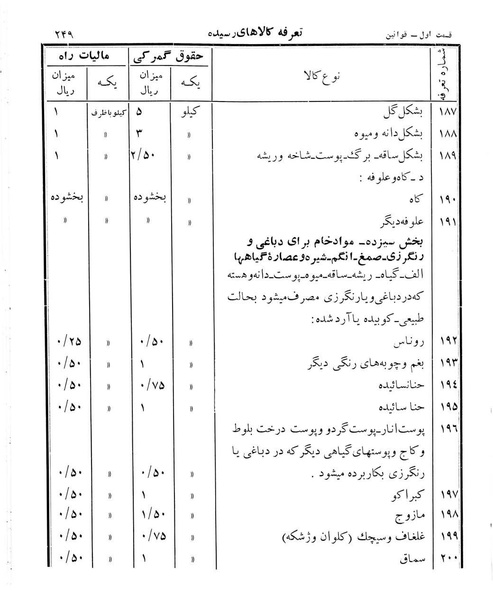 قسمت اول ـ قوانین تعرفه کالاهای رسیده ۲۴۹
شماره تعرفه نوع کالا حقوق گمرکی مالیات راه
یکه میزان ریال یکه میزان ریال
۱۸۷ بشکل گل کیلو ۵ کیلو باظرف ۱
۱۸۸ بشکل دانه و میوه » ۳ » ۱
۱۸۹ بشکل ساقه ـ برگ ـ پوست ـ شاخه وریشه » ۲/۵۰ » ۱
د ـ کاه و علوفه :
۱۹۰ کاه » بخشوده » بخشوده
۱۹۱ علوفه دیگر » » » »
بخش ـ سیزده ـ مواد خام برای دباغی و
رنگرزی ـ صمغ ـ انگم ـ شیره و عصارهٔ گیاهها
الف ـ گیاه ـ ریشه ـ ساقه ـ میوه ـ پوست ـ دانه و هسته
که در دباغی و یا رنگرزی مصرف میشود بحالت
طبیعی ـ کوبیده یا آرد شده :
۱۹۲ روناس » ۰/۵۰ » ۰/۲۵
۱۹۳ بغم و چوبه‌های رنگی دیگر » ۱ » ۰/۵۰
۱۹۴ حنا نسائیده » ۰/۷۵ » ۰/۵۰
۱۹۵ حنا سائیده » ۱ » ۰/۵۰
۱۹۶ پوست انار ـ پوست گردو و پوست درخت بلوط
و کاج و پوستهای گیاهی دیگر که در دباغی یا
رنگرزی بکار برده میشود . » ۰/۵۰ » ۰/۵۰
۱۹۷ کبراکو » ۱ » ۰/۵۰
۱۹۸ مازوج » ۱/۵۰ » ۰/۵۰
۱۹۹ غلغاف وسیچك (کلوان وژشکه) » ۰/۷۵ » ۰/۵۰
۲۰۰ سماق » ۱ » ۰/۵۰